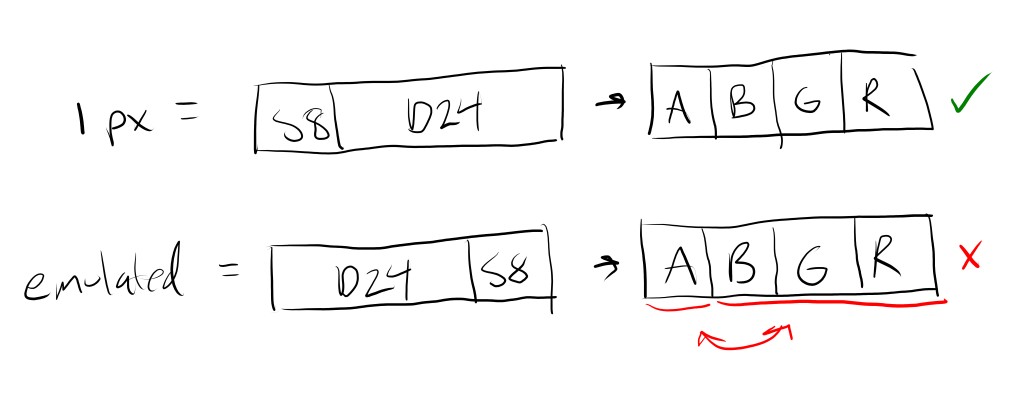 1 px = S8 D24 → A B G R ✓
emulated = D24 S8 → A B G R ✗